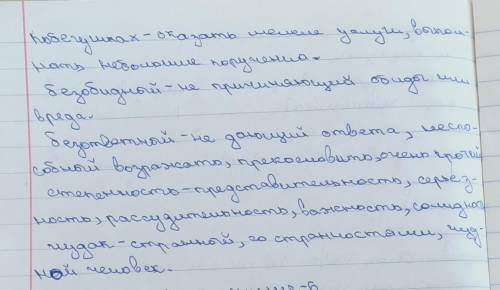 побегушках - оказать мелкие услуги, выпол-
нать небольшие поручения.
безобидный - не причиняющий обиды или
вреда.
безответный - не дающий ответа, неспо-
собный возражать, прекословить, очень кроткий
степенность - представительность, серьез-
ность, рассудительность, важность, солидность
чудак - странный, со странностями, чуд-
ной человек.